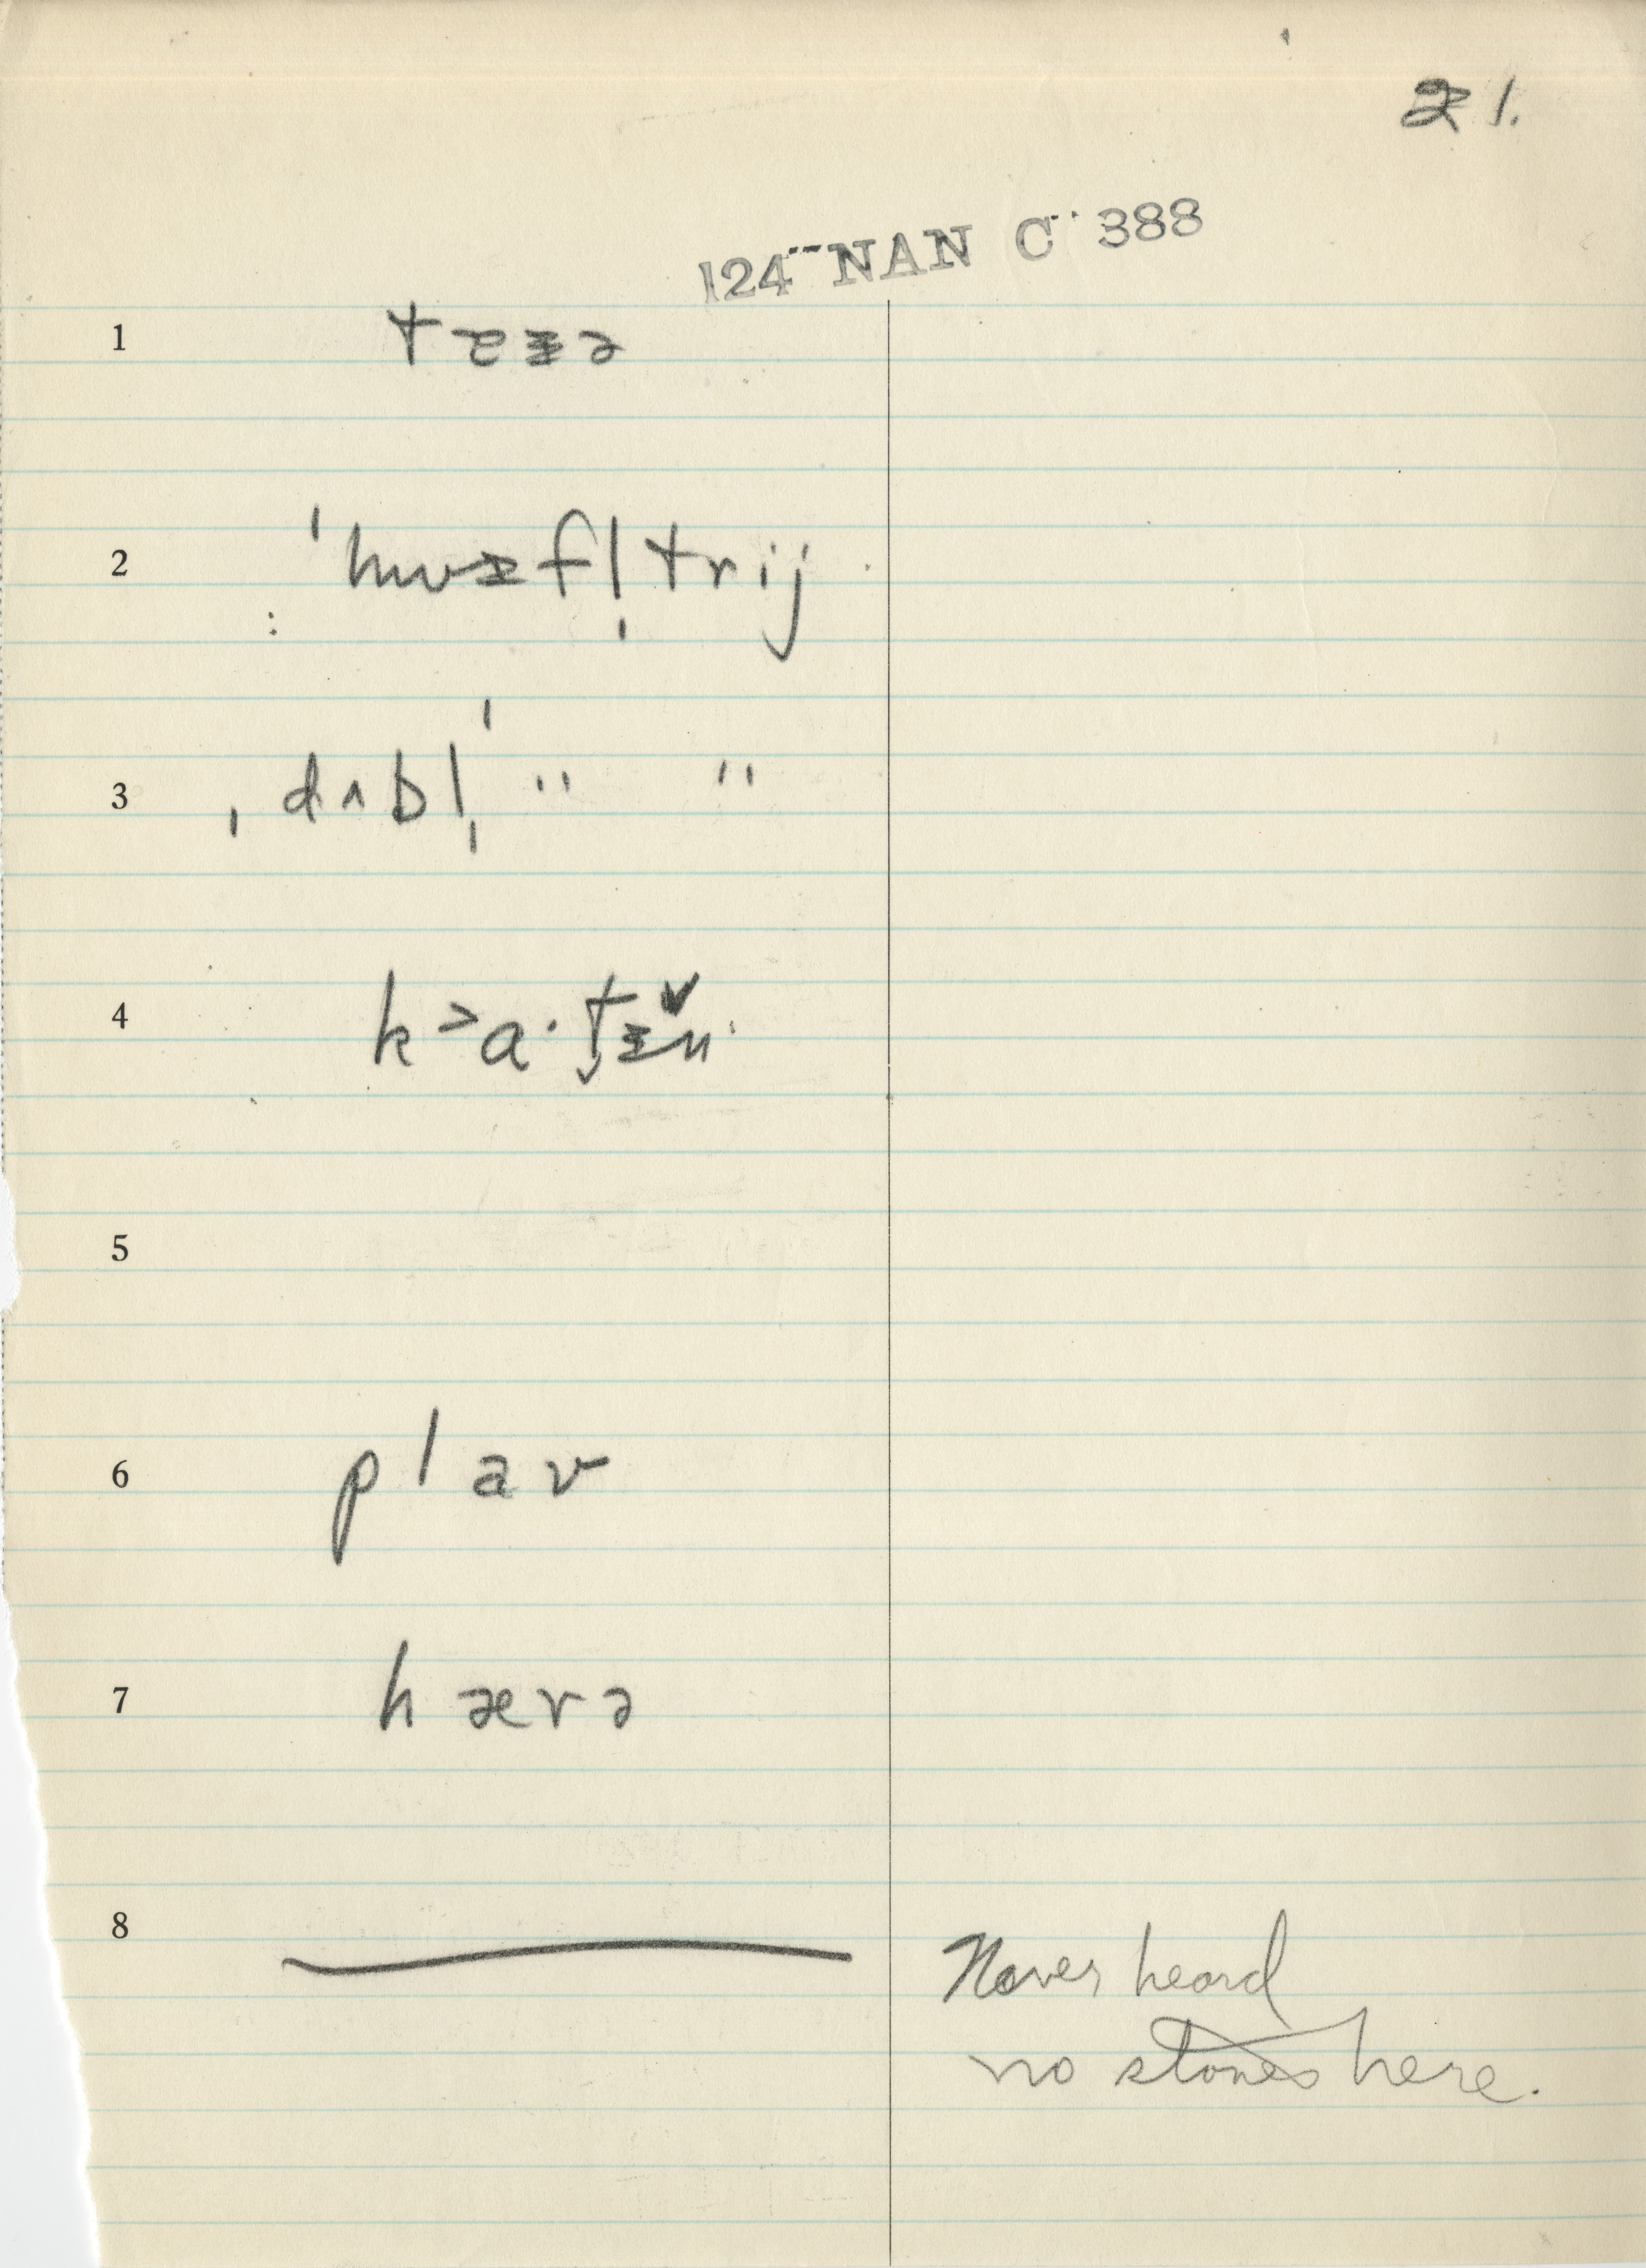 21.
124 NAN C 388
1
2 ˈhwɪfl̩trij
3 ˌdʌbl̩ˈ " "
4
5
6 plav
7 hærə
8 Never heard
no stones here.